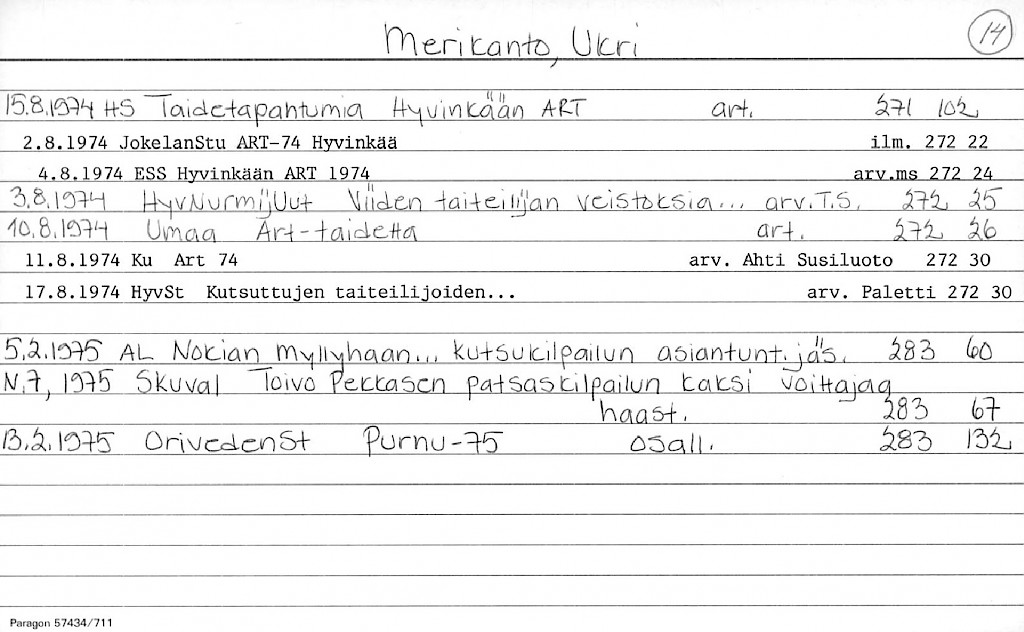 Merikanto, Ukri 14
15.8.1974 HS Taidetapahtumia Hyvinkään ART art. 271 102
2.8.1974 JokelanStu ART-74 Hyvinkää ilm. 272 22
4.8.1974 ESS Hyvinkään ART 1974 arv.ms 272 24
3.8.1974 HyvNurmijUut Viiden taiteilijan veistoksia... arv.T.S. 272 25
10.8.1974 Umaa Art-taidetta art. 272 26
11.8.1974 Ku Art 74 arv. Ahti Susiluoto 272 30
17.8.1974 HyvSt Kutsuttujen taiteilijoiden... arv. Paletti 272 30
5.2.1975 AL Nokian Myllyhaan... kutsukilpailun asiantunt.jäs. 283 60
N.7, 1975 Skuval Toivo Pekkasen patsaskilpailun kaksi voittajaa
haast. 283 67
13.2.1975 OrivedenSt Purnu-75 osall. 283 132
Paragon 57434/711